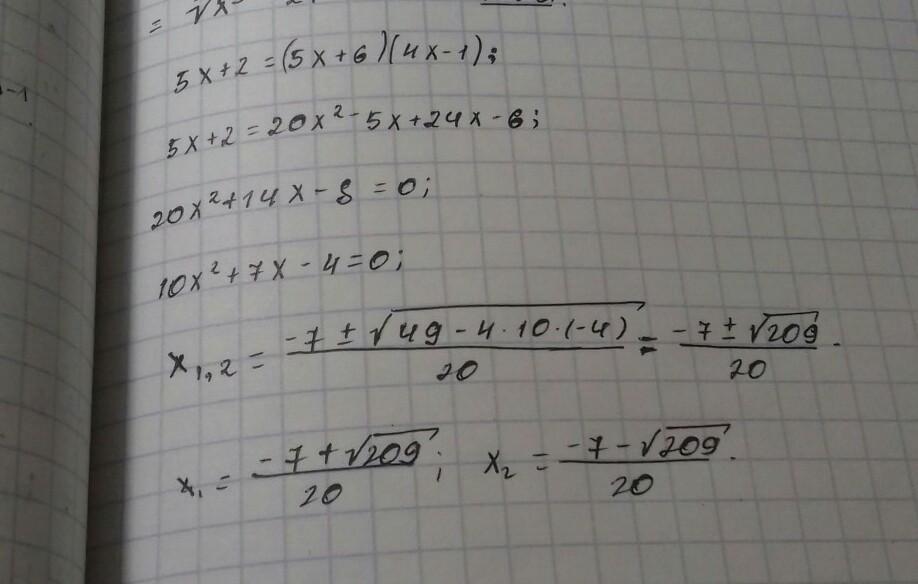 = √x
5x+2 = (5x+6)(4x-1);
5x+2 = 20x²-5x+24x-6;
20x²+14x-8 = 0;
10x²+7x-4=0;
x₁,₂ = (-7 ± √(49-4·10·(-4)))/20 = (-7±√209)/20.
x₁ = (-7+√209)/20; x₂ = (-7-√209)/20.